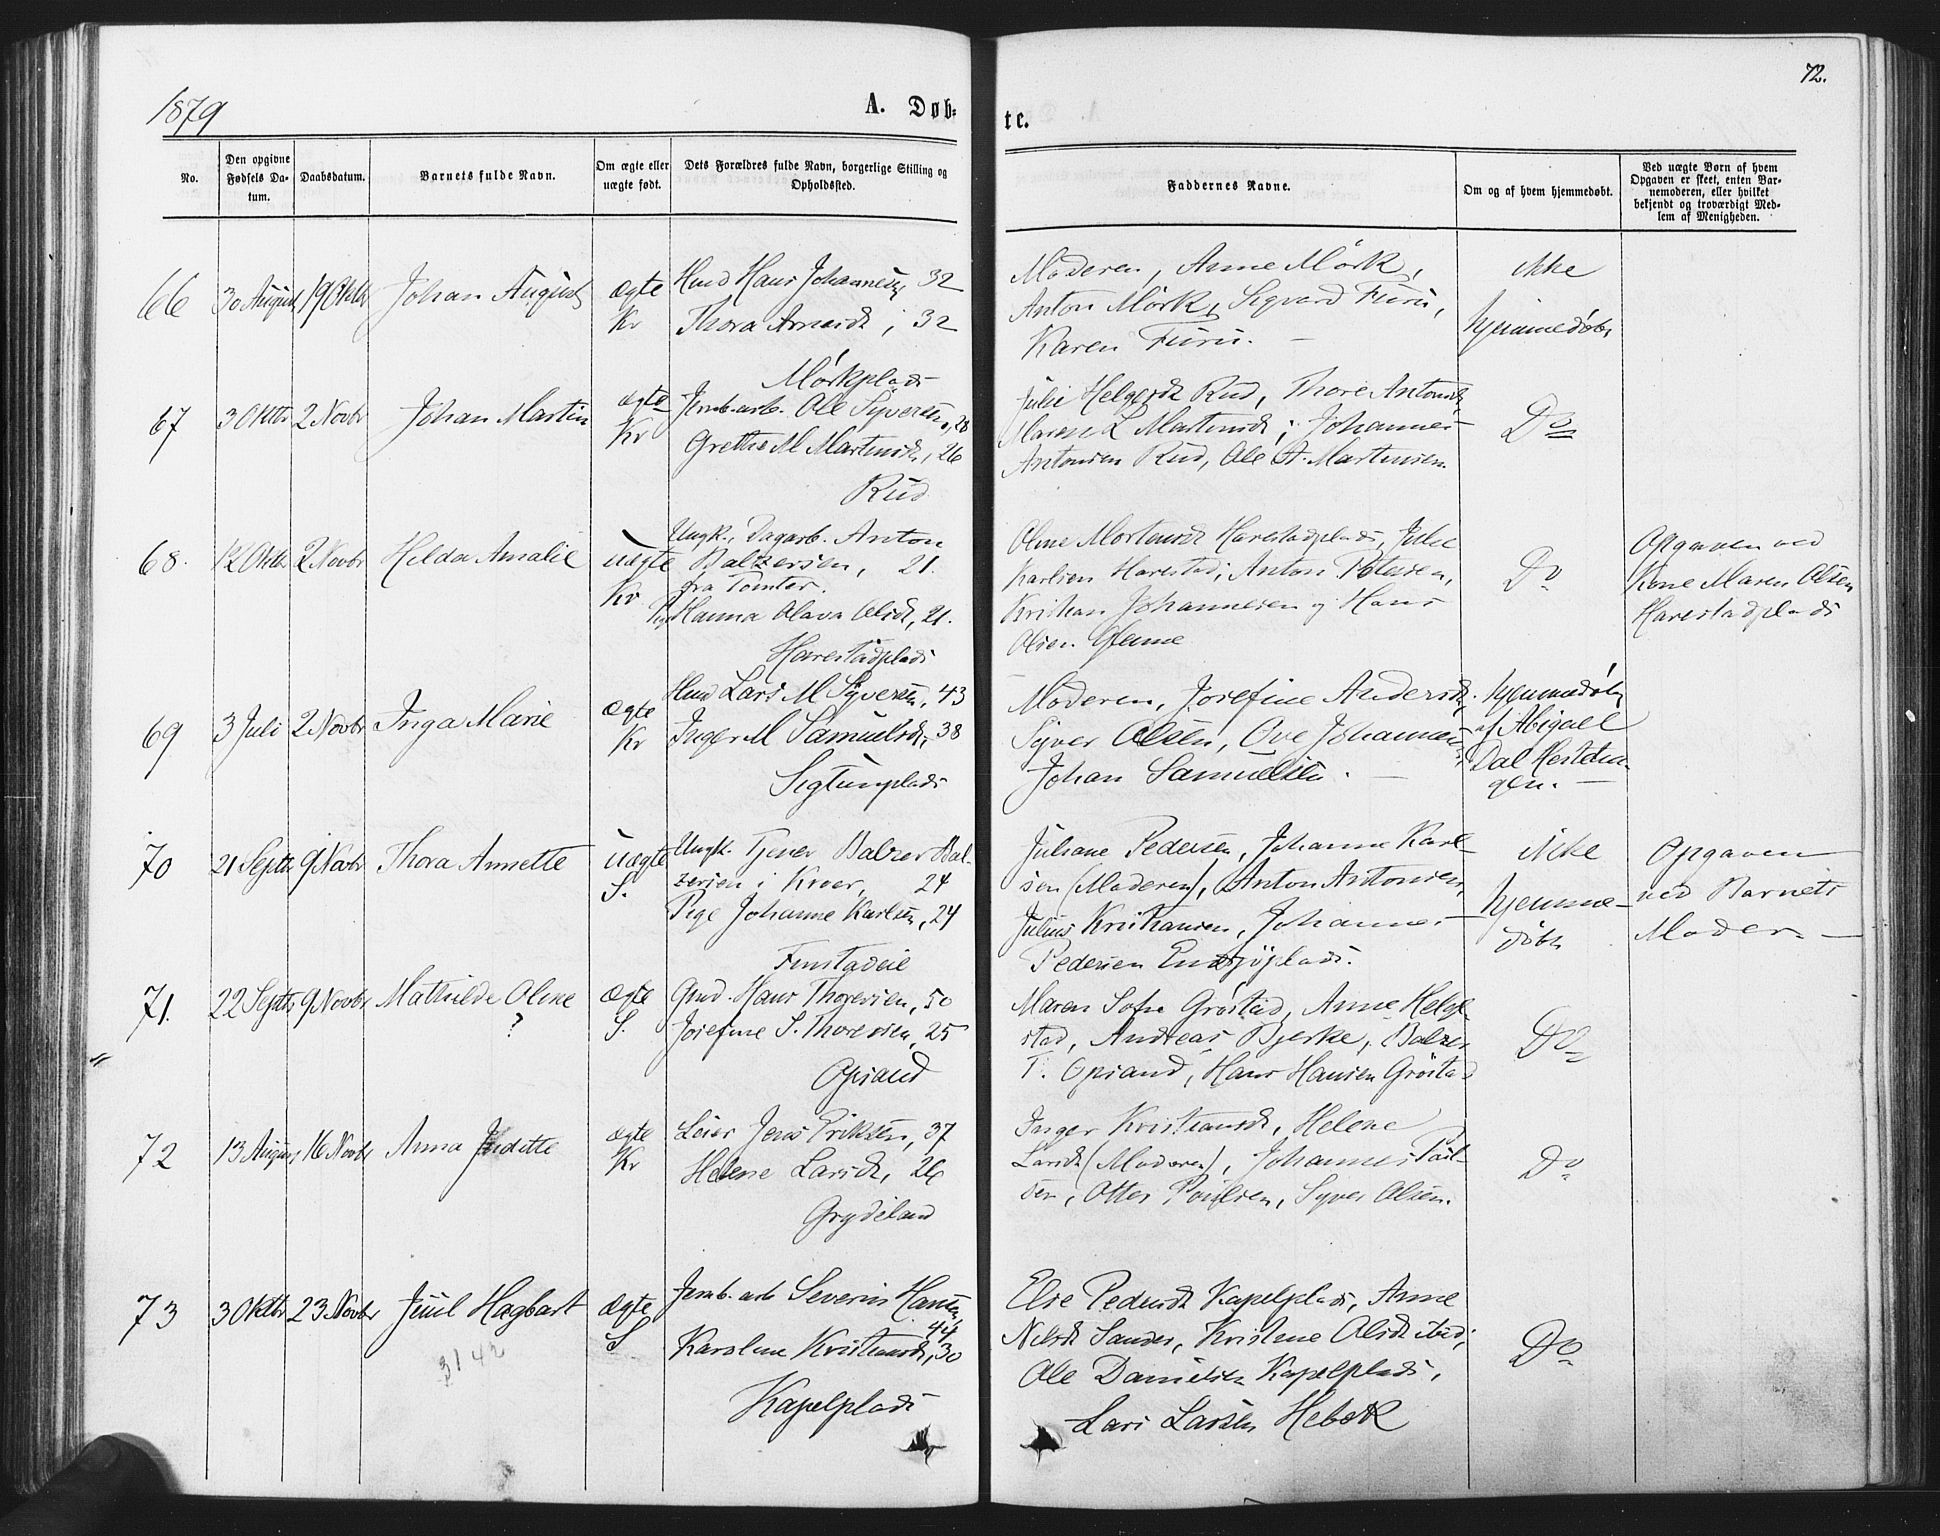 1879
A. Døb-
te.
72.
No.
Den opgivne
Fødsels Da-
tum.
Daabsdatum.
Barnets fulde Navn.
Om ægte eller
uægte født.
Dets Forældres fulde Navn, borgerlige Stilling og
Opholdssted.
Faddernes Navne.
Om og af hvem hjemmedøbt.
Ved uægte Børn af hvem
Opgaven er skeet, enten Bar-
nemoderen, eller hvilket
bekjendt og troværdigt Med-
lem af Menigheden.
66 30 August 19 Oktbr Johan August ægte
Kr
Hmd Hans Johannesen, 32
Thora Arnesdt, 32
Mørkplads
Moderen, Anne Mørk,
Anton Mørk, Sigvard Furu,
Karen Furu. —
ikke
hjemmedøbt
67 3 Oktbr 2 Novbr Johan Martin ægte
Kr
Jernb.arb. Ole Syversen, 28
Grethe M Martinsdt, 26
Rud
Julie Helgesdt Rud, Thore Antonsdt,
Maren L Martinsdt; Johannes
Antonsen Rud, Ole A. Martinsen.
Do
68. 12 Oktbr 2 Novbr Helda Amalie uægte
Kr
Ungk., Dagarb. Anton
Balzersen, 21.
fra Tomter.
Pig Hanna Olava Olsdt, 21.
Harestadplads
Oline Mortensdt Harestadplads, Julie
Karlsen Harestad; Anton Petersen,
Kristian Johannesen og Hans
Olsen Glenne
Do
Opgaven ved
Kone Maren Olsen
Harestadplads
69 3 Juli 2 Novbr Inga Marie ægte
Kr
Hmd Lars M Syversen, 43
Inger M Samuelsdt, 38
Sigtunplads
Moderen, Josefine Andersdt,
Syver Olsen, Ove Johannesen,
Johan Samuelsen. —
hjemmedøbt
af Abigael
Dal
gen. —
70 21 Septbr 9 Novbr Thora Annette uægte
S.
Ungk. Tjener Balzer Bal-
zersen i Kroer, 24
Pige Johanne Karlsen, 24
Finstadeie
Juliane Pedersen, Johanne Karl-
sen (Moderen), Anton Antonsen,
Julius Kristiansen, Johannes
Pedersen Endsjøplads.
ikke
hjemme-
døbt
Opgaven
ved Barnets
Moder. —
71. 22 Septbr 9 Novbr Mathilde Oline ægte
?
S.
Gmd. Hans Thoresen, 50
Josefine S. Thoresen, 25
Opsand
Maren Sofie Grøstad, Anne Helge-
stad, Andreas Bjerke, Balzer
T. Opsand, Hans Hansen Grøstad
Do
72 13 August 16 Novbr Anna Judette ægte
Kr
Leier Jens Eriksen, 37
Helene Larsdt, 26
Grydeland
Inger Kristiansdt, Helene
Larsdt (Moderen), Johannes Poul-
sen, Otter Poulsen, Syver Olsen.
Do
73 3 Oktbr 23 Novbr Juul Hagbart ægte
S
3142
Jernb. arb Severin Hansen,
44
Karoline Kristiansdt, 30
Kapelplads
Else Pedersdt Kapelplads, Anne
Nilsdt Sander, Kristine Olsdt ibid;
Ole Danielsen Kapelplads,
Lars Larsen Hebæk
Do